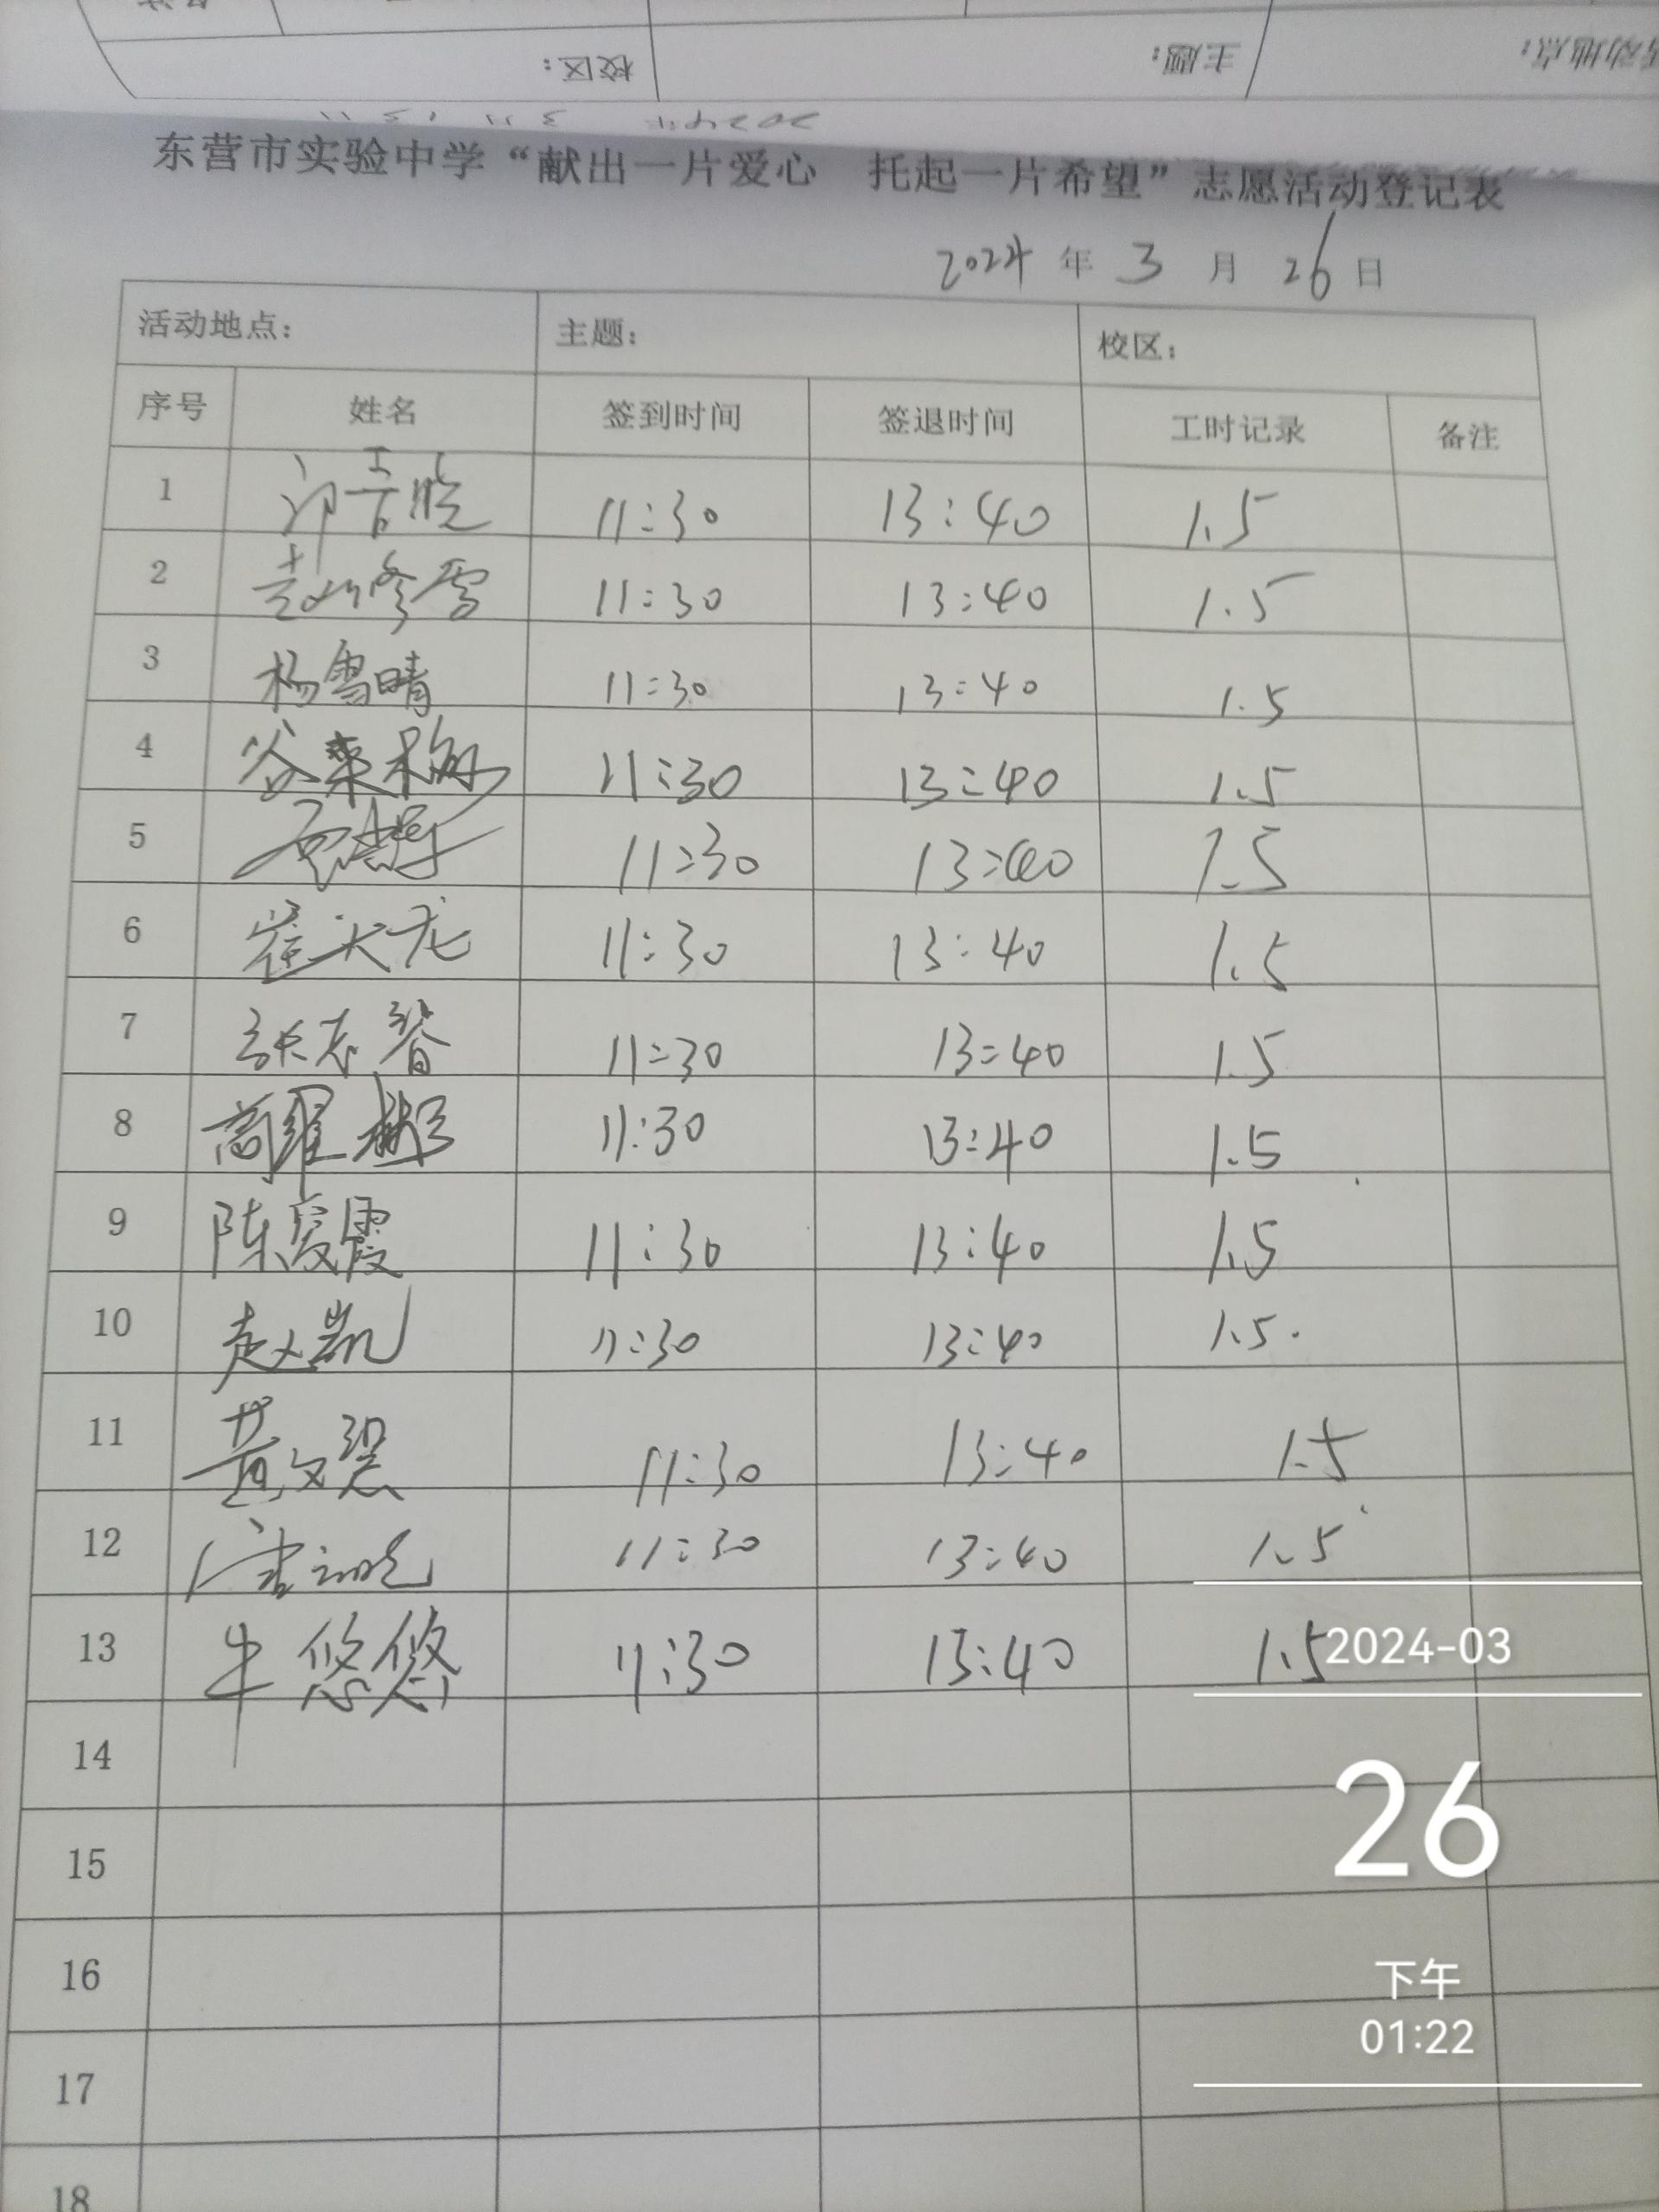 校区： 主题： 活动地点：
东营市实验中学“献出一片爱心 托起一片希望”志愿活动登记表
2024 年 3 月 26 日
活动地点： 主题： 校区：
序号 姓名 签到时间 签退时间 工时记录 备注
1 11:30 13:40 1.5
2 11:30 13:40 1.5
3 杨雪晴 11:30 13:40 1.5
4 11:30 13:40 1.5
5 11:30 13:40 1.5
6 崔天龙 11:30 13:40 1.5
7 11:30 13:40 1.5
8 11:30 13:40 1.5
9 陈爱霞 11:30 13:40 1.5
10 赵凯 11:30 13:40 1.5
11 黄文 11:30 13:40 1.5
12 11:30 13:40 1.5
13 牛悠悠 11:30 13:40 1.5
2024-03
14
26
15
16
下午
01:22
17
18